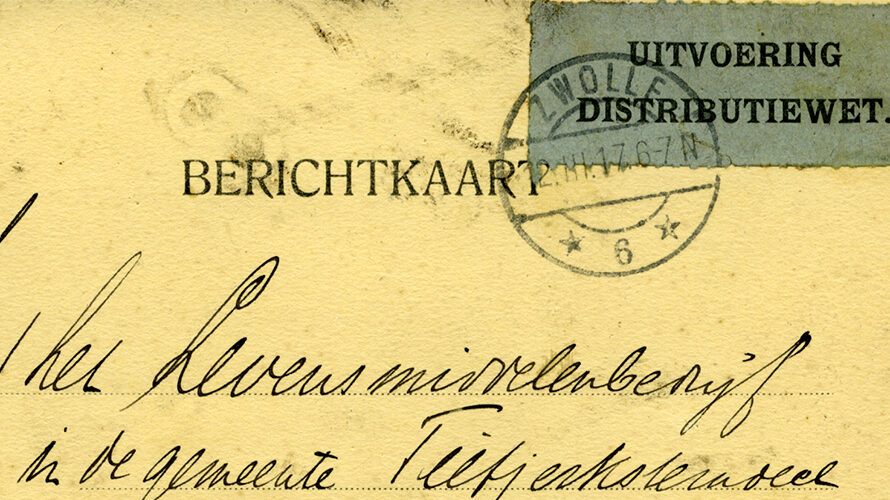 UITVOERING
DISTRIBUTIEWET.
ZWOLLE
12.III.17.6-7N
6
BERICHTKAART
het Levensmiddelenbedrijf
in de gemeente Tietjerksteradeel